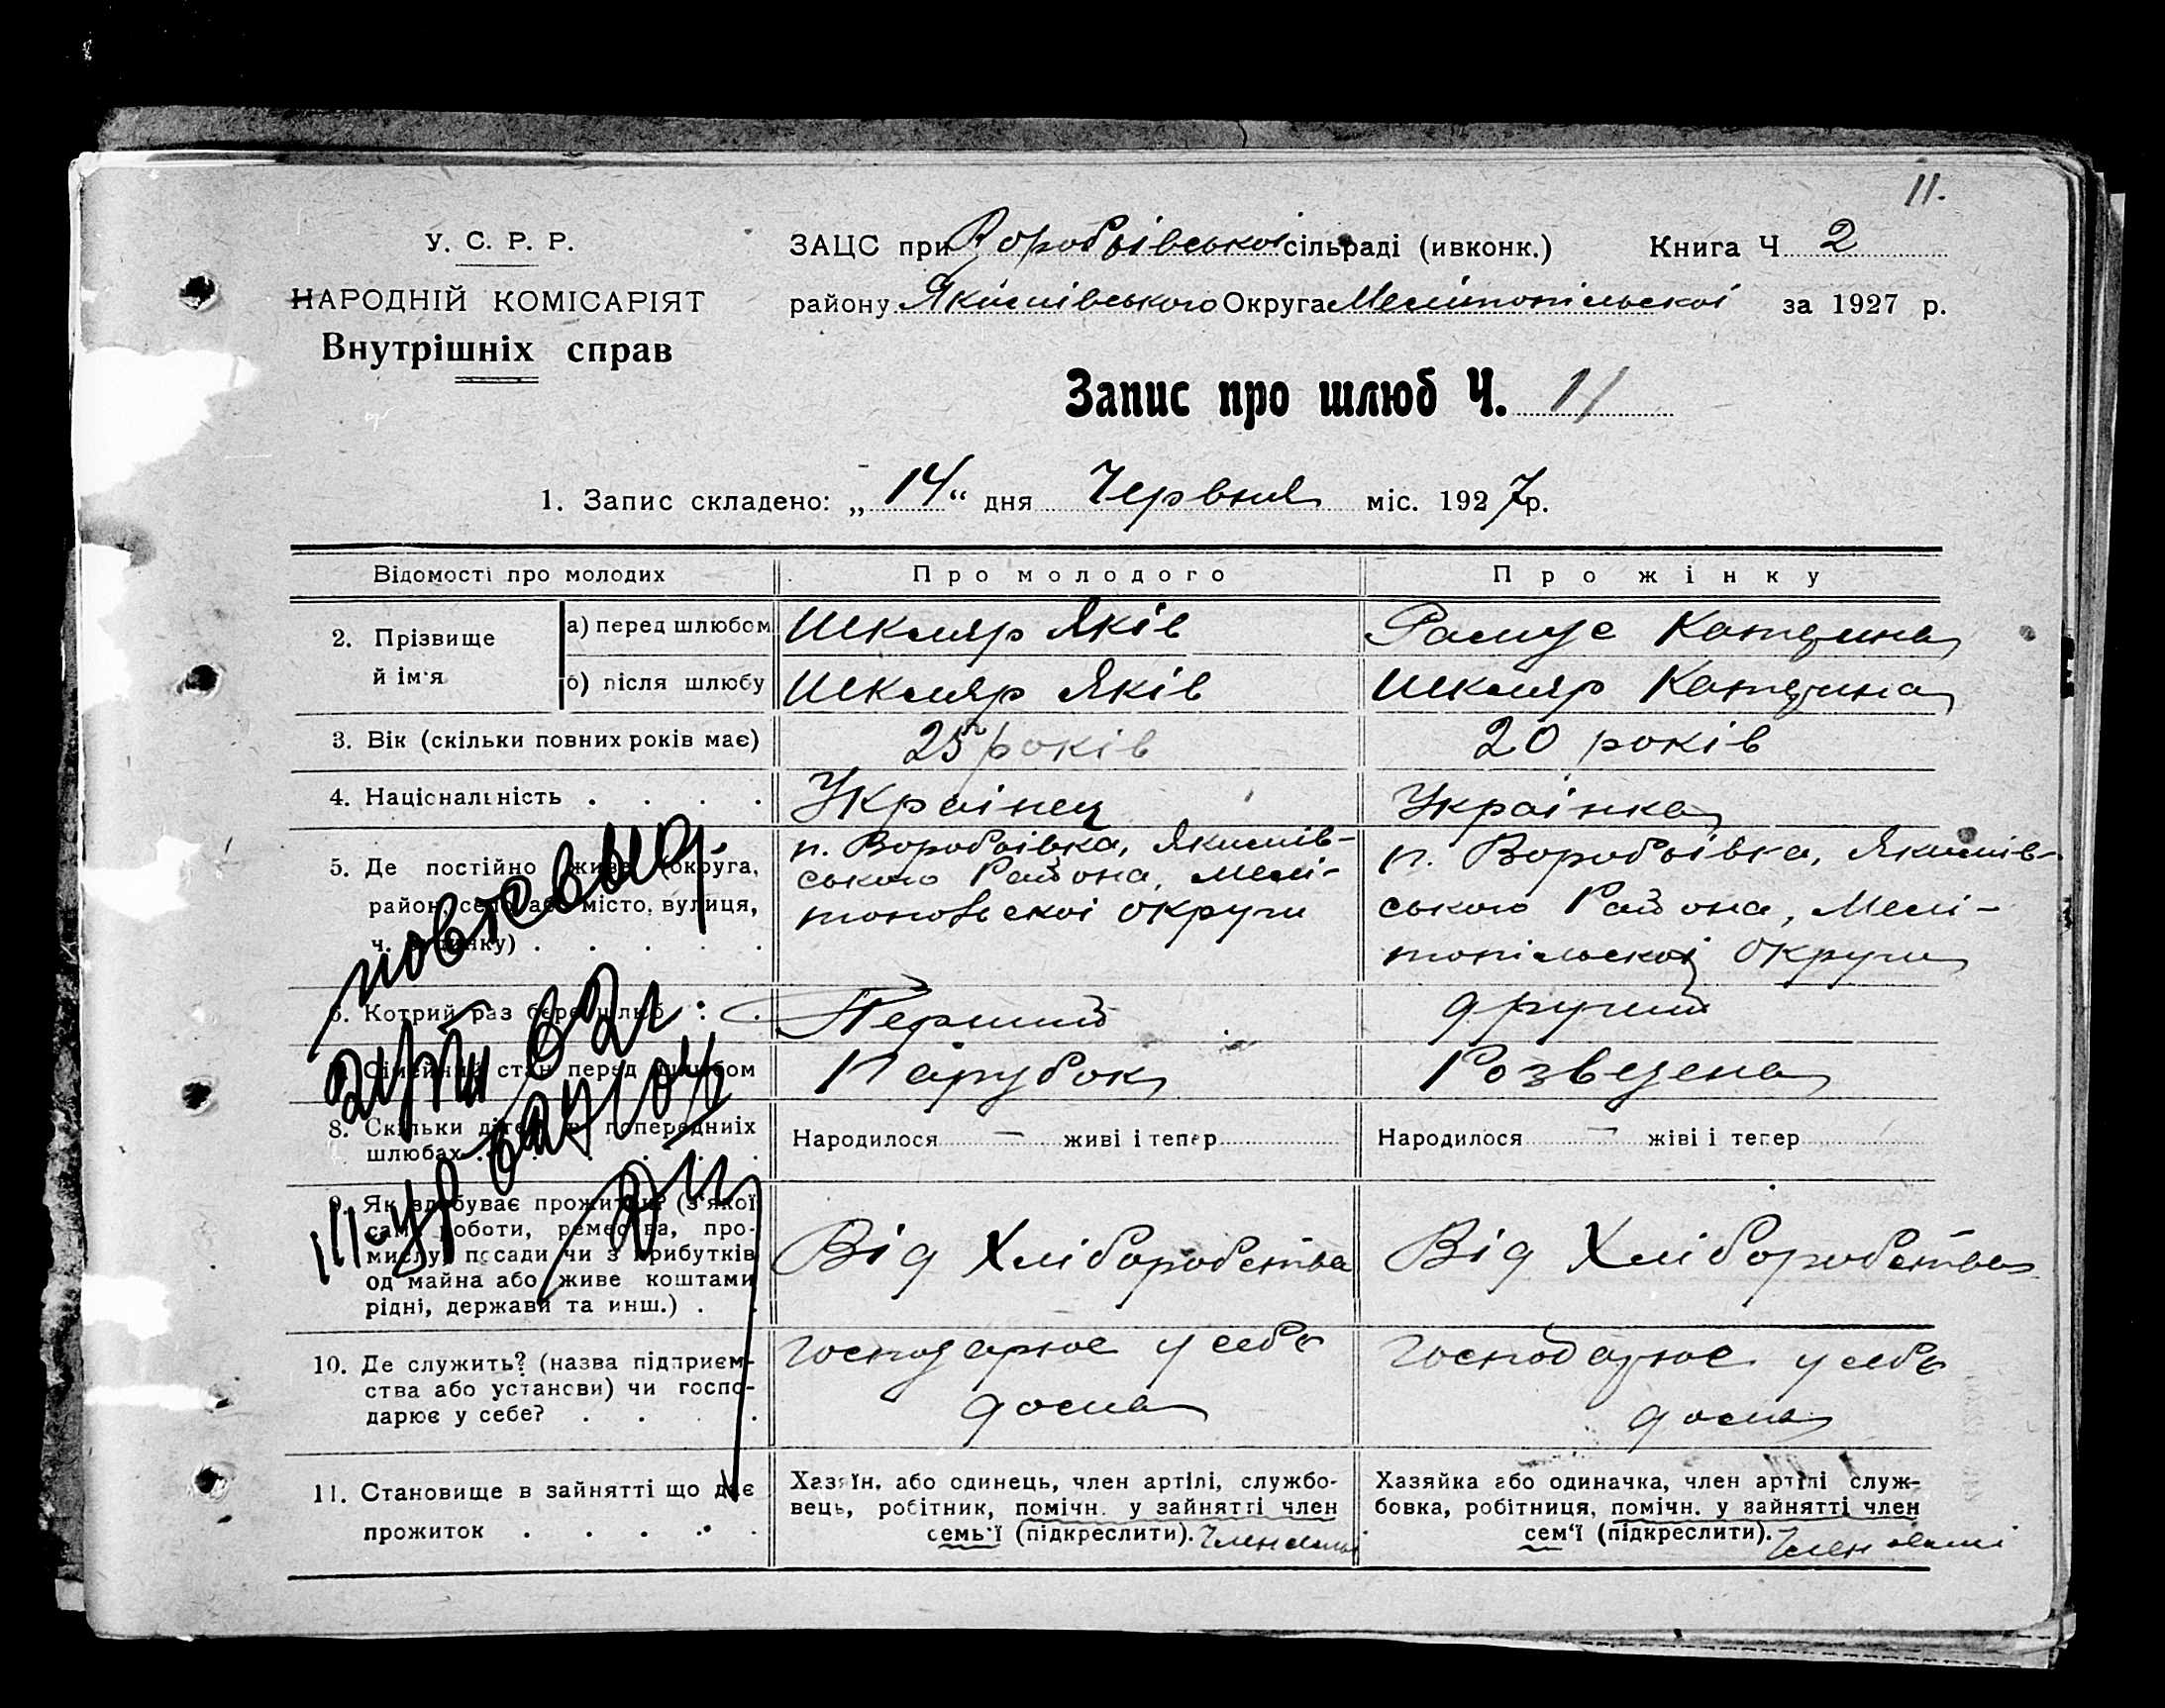 11.
У. С. Р. Р.
НАРОДНІЙ КОМІСАРІЯТ
Внутрішніх справ
ЗАЦС при Воробьівської сільраді (ивконк.) Книга Ч 2
району Якимівського Округа Мелітопільскої за 1927 р.
Запис про шлюб Ч. 11
1. Запис складено: „14“ дня Червня міс. 1927р.
Відомості про молодих Про молодого Про жінку
2. Прізвище й ім'я
а) перед шлюбом Шкляр Яків Катерина
б) після шлюбу Шкляр Яків Шкляр Катерина
3. Вік (скільки повних років має) 25 років 20 років
4. Національність Украінец Украінка
5. Де постійно живе (округа, район, село або місто, вулиця, ч. будинку)
п. Воробьівка, Якимів-
ського Района, Мелі-
топольскоі округи
п. Воробьівка, Якимів-
ського Района, Мелі-
топільскоі Округи
6. Котрий раз бере шлюб Перший другий
7. Сімейний стан перед шлюбом Парубок Розведена
8. Скільки дітей в попередниіх шлюбах
Народилося — живі і тепер
Народилося — жіві і тепер
9. Як здобуває прожиток? (з якої
саме роботи, ремества, про-
мислу, посади чи з прибутків
од майна або живе коштами
рідні, держави та инш.)
Від Хліборобства Від Хліборобства
10. Де служить? (назва підприєм-
ства або установи) чи госпо-
дарює у себе?
Господарює у себе
дома
Господарює у себе
дома
11. Становище в зайнятті що дає
прожиток
Хазяїн, або одинець, член артілі, службо-
вець, робітник, помічн. у зайнятті член
семь'ї (підкреслити). Член семьі
Хазяйка або одиначка, член артілі служ-
бовка, робітниця, помічн. у зайнятті член
сем'ї (підкреслити). Член семьі